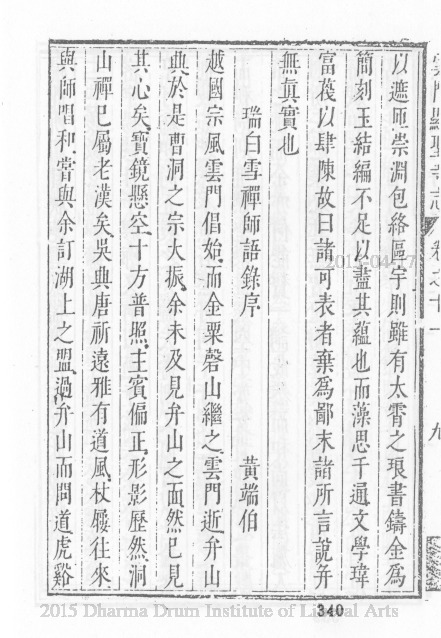 以遮匝崇淵包絡區宇則雖有太霄之琅書鑄金為
簡刻玉結編不足以盡其蘊也而藻思千通文學瑋
富莪以肆陳故曰諸可表者棄為鄙末諸所言說弁
無眞實也
瑞白雪禪師語錄序
黃端伯
越國宗風雲門倡始而金粟磬山繼之雲門逝弁山
典於是曹洞之宗大振余未及見弁山之面然巳見
其心矣寶鏡懸空十方普照主賓偏正形影歷然洞
山禪巳屬老漢矣吳典唐祈遠雅有道風杖屨往來
與師唱和嘗與余訂湖上之盟過弁山而問道虎谿
卷之十一
九
2015-04-17
340
2015 Dharma Drum Institute of Liberal Arts